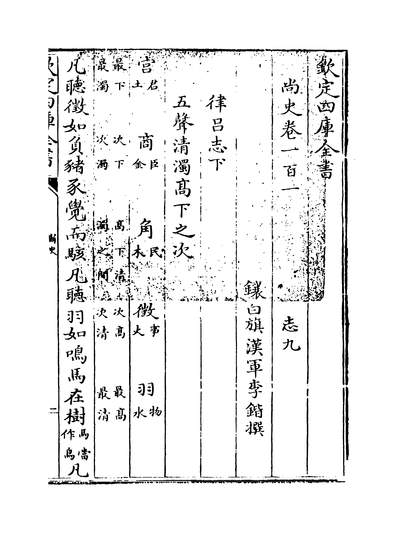 欽定四庫全書
尚史卷一百一　志九
鑲白旗漢軍李鍇撰
律呂志下
五聲清濁髙下之次
宫君土　商臣金　角民木　徵事火　羽物水
最下最濁　次下次濁　髙下清濁之間　次髙次清　最髙最清
凡聽徵如負豬豕覺而駭凡聽羽如鳴馬在樹馬當作鳥凡
欽定四庫全書
尚史
二